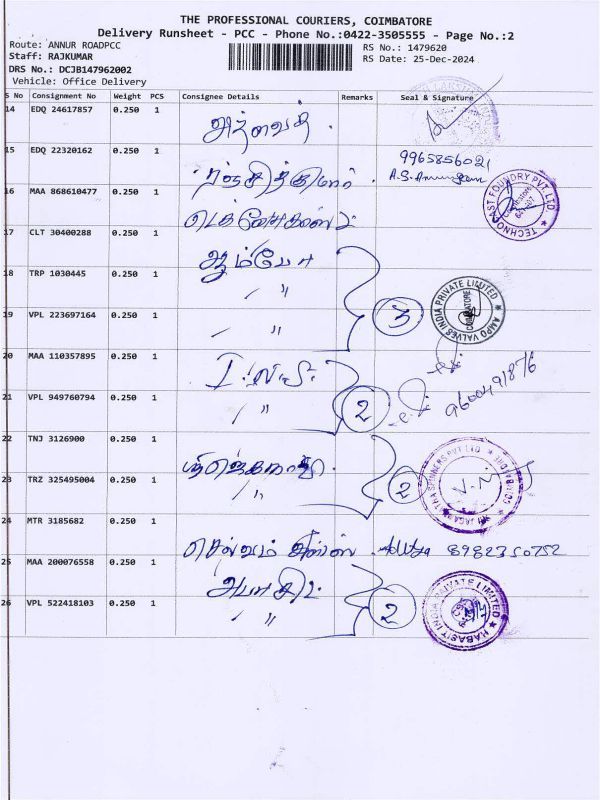 THE PROFESSIONAL COURIERS, COIMBATORE
Delivery Runsheet - PCC - Phone No.:0422-3505555 - Page No.:2
Route: ANNUR ROADPCC
RS No.: 1479620
Staff: RAJKUMAR
RS Date: 25-Dec-2024
DRS No.: DCJB147962002
Vehicle: Office Delivery
S No Consignment No Weight PCS Consignee Details Remarks Seal & Signature
14 EDQ 24617857 0.250 1
15 EDQ 22320162 0.250 1 9965856021
16 MAA 868610477 0.250 1 TECHNOCAST FOUNDRY PVT. LTD.
17 CLT 30400288 0.250 1 ஆம்போ
18 TRP 1030445 0.250 1 〃
3 AMPO VALVES INDIA PRIVATE LIMITED COIMBATORE
19 VPL 223697164 0.250 1 〃
20 MAA 110357895 0.250 1
9600491876
21 VPL 949760794 0.250 1 〃 2
22 TNJ 3126900 0.250 1
23 TRZ 325495004 0.250 1 〃 2
24 MTR 3185682 0.250 1 செல்வம் 8982350752
25 MAA 200076558 0.250 1
26 VPL 522418103 0.250 1 〃 2 HABASIT INDIA PRIVATE LIMITED